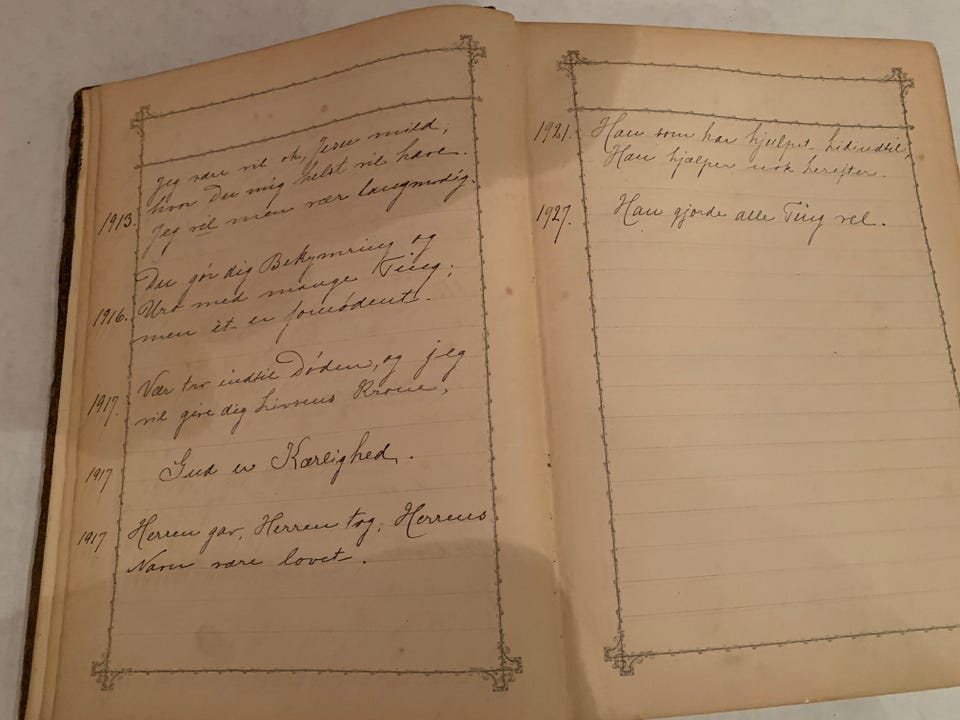 Jeg være vil oh, Jesu mild,
hvor Du mig helst vil have.
1913. Jeg vil men vær langmodig.
Du gør dig Bekymring og
1916. Uro med mange Ting;
men ét er fornødent.
Vær tro indtil Døden, og jeg
1917. vil give dig Livsens Krone,
1917 Gud er Kærlighed.
1917 Herren gav, Herren tog, Herrens
Navn være lovet.
1921. Han som har hjulpet hidindtil,
Han hjælper nok herefter.
1927. Han gjorde alle Ting vel.